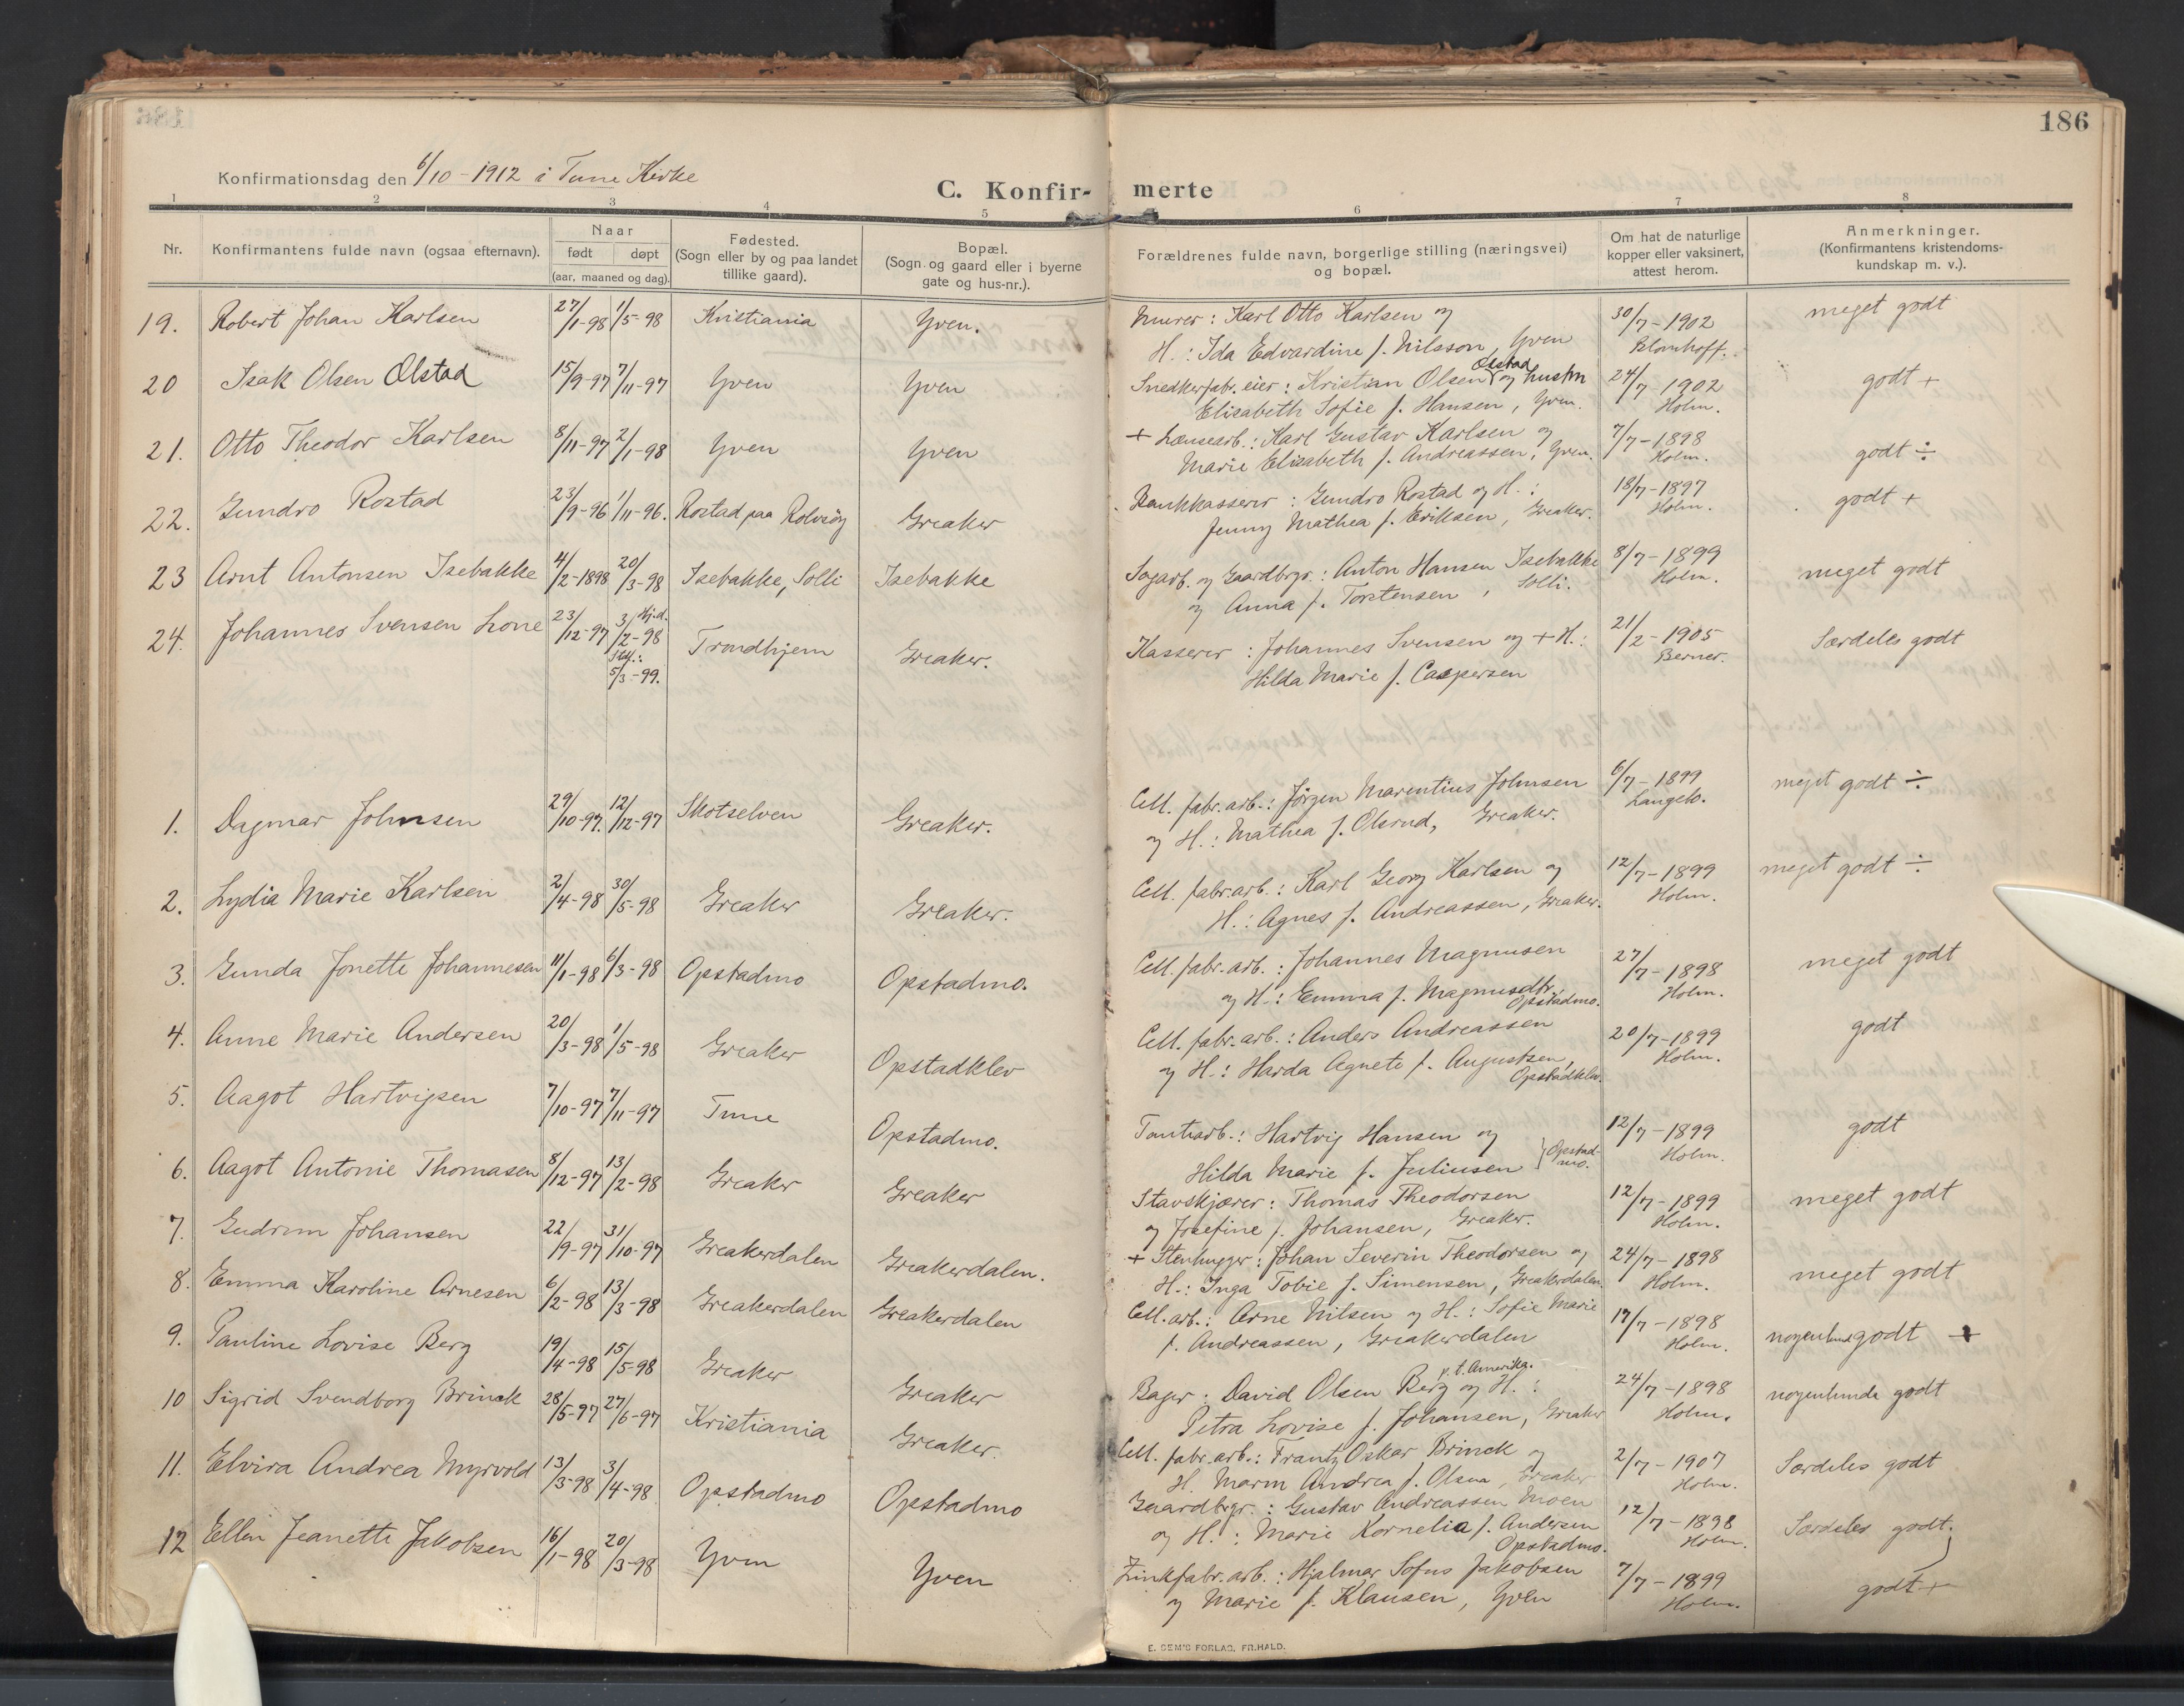 186
Konfirmationsdag den 6/10-1912 i Tune Kirke
C. Konfir- merte
1 2 3 4 5 6 7 8
Nr.
Konfirmantens fulde navn (ogsaa efternavn).
Naar
født døpt
(aar, maaned og dag).
Fødested.
(Sogn eller by og paa landet
tillike gaard).
Bopæl.
(Sogn og gaard eller i byerne
gate og hus-nr.).
Forældrenes fulde navn, borgerlige stilling (næringsvei)
og bopæl.
Om hat de naturlige
kopper eller vaksinert,
attest herom.
Anmerkninger.
(Konfirmantens kristendoms-
kundskap m. v.).
19. Robert Johan Karlsen 27/1-98 1/5-98 Kristiania Yven. Murer: Karl Otto Karlsen og 30/7-1902 meget godt
H.: Ida Edvardine f. Nilsson, Yven Blomhoff.
20 Isak Olsen Olstad 15/9-97 7/11-97 Yven Yven Snedkerfabr. eier: Kristian Olsen Olstad og hustru 24/7 1902 godt +
Elisabeth Sofie f. Hansen, Yven. Holm.
21. Otto Theodor Karlsen 8/11-97 2/1-98 Yven Yven + Lænsearb.: Karl Gustav Karlsen og 7/7-1898 godt ÷
Marie Elisabeth f. Andreassen, Yven. Holm.
22. Gundro Rostad 23/9-96 1/11-96. Rostad paa Rolvsøy Greaker Bankkasserer: Gundro Rostad og H.: 18/7-1897 godt +
Jenny Mathea f. Eriksen, Greaker. Holm.
23 Arnt Antonsen Isebakke 4/2-1898 20/3-98 Isebakke, Solli Isebakke Sagarb. og Gaardbrgr.: Anton Hansen Isebakke 8/7-1899 meget godt
og Anna f. Torstensen, Solli. Holm.
24. Johannes Svensen Lone 23/12-97 3/2-98 Hj.d. Trondhjem Greaker. Kasserer: Johannes Svensen og + H.: 21/2-1905 Særdeles godt
5/3-99. Hilda Marie f. Caspersen Berner.
1. Dagmar Johnsen 29/10-97. 12/12-97 Skotselven Greaker. Cell. fabr. arb.: Jörgen Marentius Johnsen 6/7-1899 meget godt ÷
og H.: Mathea f. Olsrud, Greaker. Langeb.
2. Lydia Marie Karlsen 2/4-98 30/5-98 Greaker Greaker. Cell. fabr. arb.: Karl Georg Karlsen og 12/7-1899 meget godt ÷
H.: Agnes f. Andreassen, Greaker. Holm.
3. Gunda Jonette Johannesen 11/1-98 6/3-98 Opstadmo Opstadmo. Cell. fabr. arb.: Johannes Magnusen 27/7-1898 meget godt
og H.: Emma f. Magnusdtr. Opstadmo. Holm.
4. Anne Marie Andersen 20/3-98 1/5-98 Greaker Opstadklev Cell. fabr. arb.: Anders Andreassen 20/7-1899 godt
og H.: Harda Agnete f. Augustsen, Opstadklev. Holm.
5. Aagot Hartvigsen 7/10-97 7/11-97 Tune Opstadmo. Tomtearb.: Hartvig Hansen og 12/7-1899 godt
Hilda Marie f. Juliusen } Opstad-mo. Holm.
6. Aagot Antonie Thomasen 8/12-97 13/2-98 Greaker Greaker Stavskjærer: Thomas Theodorsen 12/7-1899 meget godt
og Josefine f. Johansen, Greaker. Holm.
7. Gudrun Johansen 22/9-97 31/10-97 Greakerdalen Greakerdalen. + Stenhugger: Johan Severin Theodorsen og 24/7-1898 meget godt
H.: Inga Tobie f. Simensen, Greakerdalen. Holm.
8. Emma Karoline Arnesen 6/2-98 13/3-98 Greakerdalen Greakerdalen Cell. arb.: Arne Nilsen og H.: Sofie Marie 17/7-1898 nogenlunde godt +
f. Andreassen, Greakerdalen Holm.
9. Pauline Lovise Berg 19/4-98 15/5-98 Greaker Greaker Bager: David Olsen Berg p.t. Amerika. og H.: 24/7-1898 nogenlunde godt
Petra Lovise f. Johansen, Greaker Holm.
10 Sigrid Svendborg Brinck 28/5-97 27/6-97 Kristiania Greaker. Cell. fabr. arb.: Frantz Oskar Brinck og 2/7-1907 Særdeles godt
H. Marn Andrea f. Olsen, Greaker Holm.
11. Elvira Andrea Myrvold 13/3-98 3/4-98 Opstadmo Opstadmo Gaardbrgr.: Gustav Andreassen Moen 12/7-1898 Særdeles godt.
og H.: Marie Kornelia f. Andersen Opstadmo. Holm.
12 Ellen Jeanette Jakobsen 16/1-98 20/3-98 Yven Yven Zinkfabr. arb.: Hjalmar Sofus Jakobsen 7/7-1899 godt +
og Marie f. Klausen, Yven Holm.
E. SEM'S FORLAG, FR.HALD.